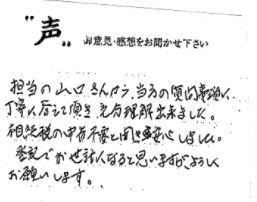 "声" お意見・感想をお聞かせ下さい
担当の山口さんから、当方の質問事項に
丁寧に答えて頂き充分理解出来ました。
相続税の申告不要と聞き安心しました。
登記でお世話になると思いますがよろしく
お願いします。